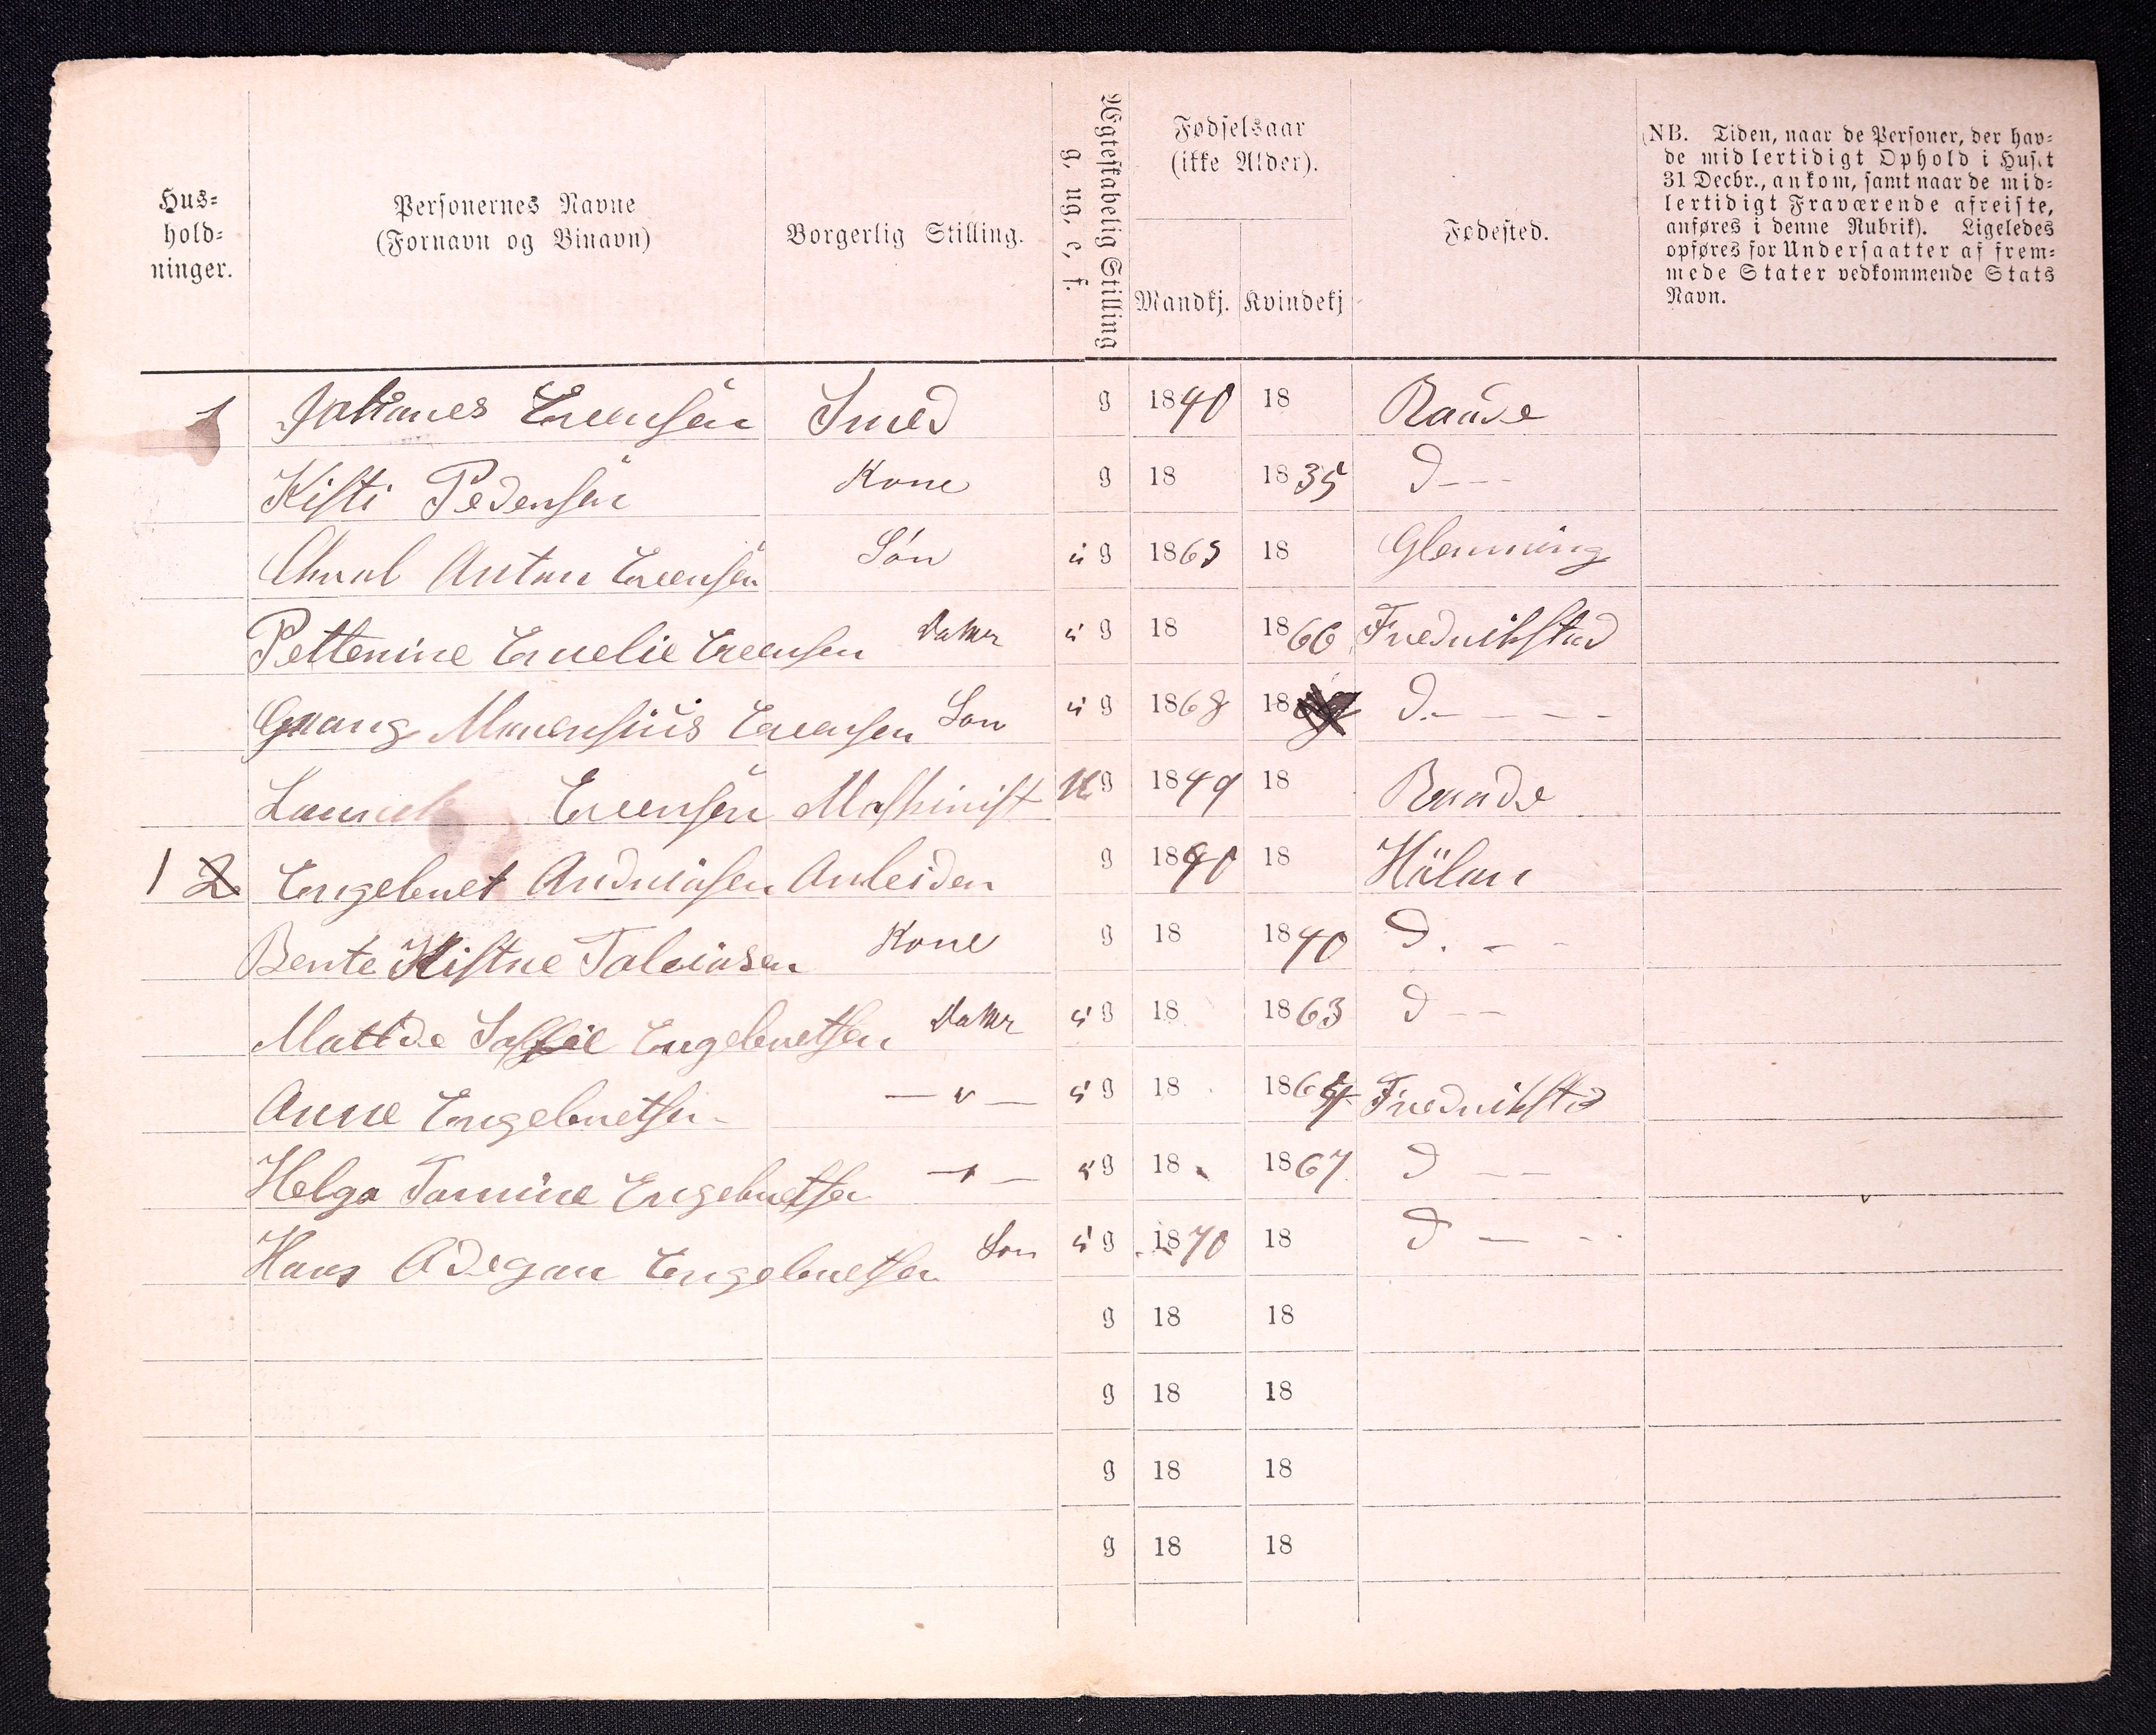 Hus-
hold-
ninger.
Personernes Navne
(Fornavn og Binavn)
Borgerlig Stilling.
Ægteskabelig Stilling
g, ug, e, f.
Fødselsaar
(ikke Alder).
Mandkj. Kvindekj
Fødested.
(NB. Tiden, naar de Personer, der hav-
de midlertidigt Ophold i Huset
31 Decbr., ankom, samt naar de mid-
lertidigt Fraværende afreiste,
anføres i denne Rubrik). Ligeledes
opføres for Undersaatter af frem-
mede Stater vedkommende Stats
Navn.
1 Johanes Evensen Smed g 1840 18 Raade
Kisti Pedersen Kone g 18 1835 D---
Anton Evensen Søn u g 1865 18 Glemming
Petterine Emelie Evensen Datter u g 18 1866 Fredrikstad
Evensen Søn u g 1868 18 D.----
Evensen Maskinist u g 1849 18 Raade
1 2 Engebret Andriasen Arbeider g 1840 18 Hölan
Bente Kistne Kone g 18 1840 D. - -
Engebretsen Datter u g 18 1863 D --
Anne Engebretsen — " — u g 18 1864 Fredrikstad
Helga Engebretsen — " — u g 18 1867 D --
Hans Engebretsen Søn u g 1870 18 D — - -
g 18 18
g 18 18
g 18 18
g 18 18